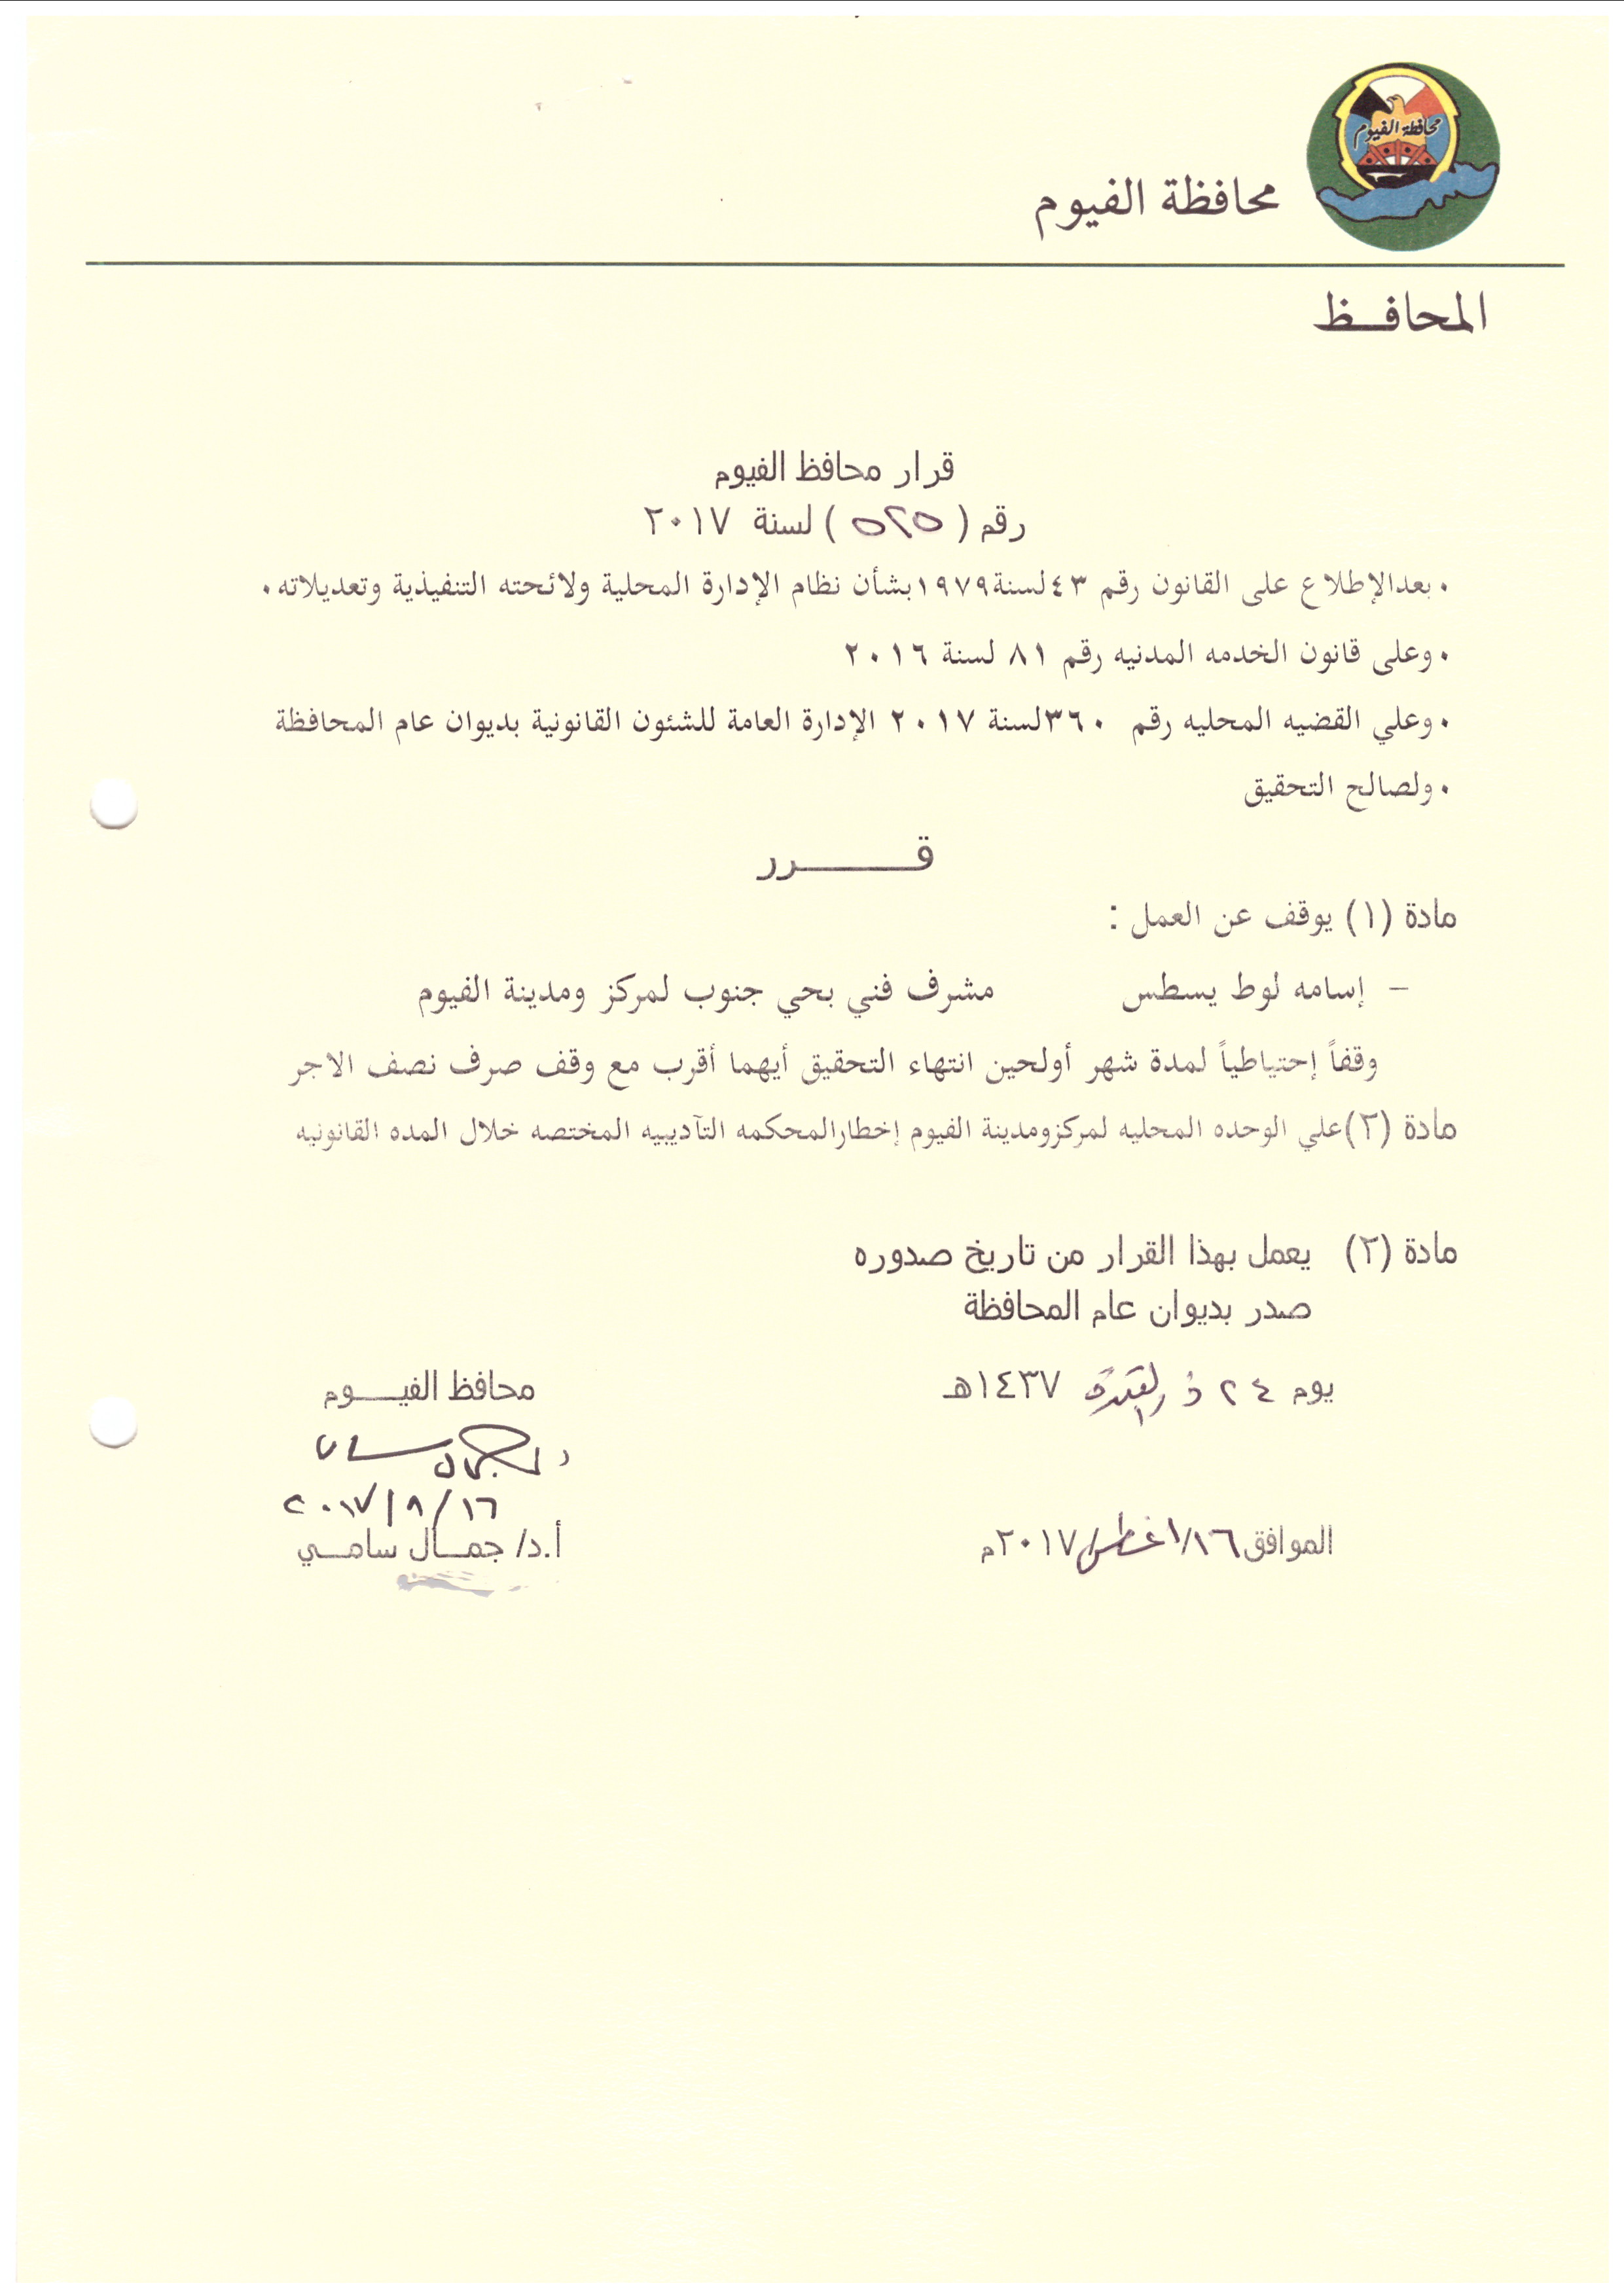 محافظة الفيوم
محافظة الفيوم
المحافـــظ
قرار محافظ الفيوم
رقم ( ٥٢٥ ) لسنة ٢٠١٧
• بعدالإطلاع على القانون رقم ٤٣لسنة١٩٧٩بشأن نظام الإدارة المحلية ولائحته التنفيذية وتعديلاته .
• وعلى قانون الخدمه المدنيه رقم ٨١ لسنة ٢٠١٦
• وعلي القضيه المحليه رقم ٣٦٠لسنة ٢٠١٧ الإدارة العامة للشئون القانونية بديوان عام المحافظة
• ولصالح التحقيق
قــــــــرر
مادة (١) يوقف عن العمل :
– إسامه لوط يسطس مشرف فني بحي جنوب لمركز ومدينة الفيوم
وقفاً إحتياطياً لمدة شهر أولحين انتهاء التحقيق أيهما أقرب مع وقف صرف نصف الاجر
مادة (٢)علي الوحده المحليه لمركزومدينة الفيوم إخطارالمحكمه التآديبيه المختصه خلال المده القانونيه
مادة (٢) يعمل بهذا القرار من تاريخ صدوره
صدر بديوان عام المحافظة
يوم ٢٤ ذ والقعدة ١٤٣٧هـ
محافظ الفيـــوم
٢٠١٧/٨/١٦
الموافق ١٦/اغسطس/٢٠١٧م
أ.د/ جمـــال سامـــي